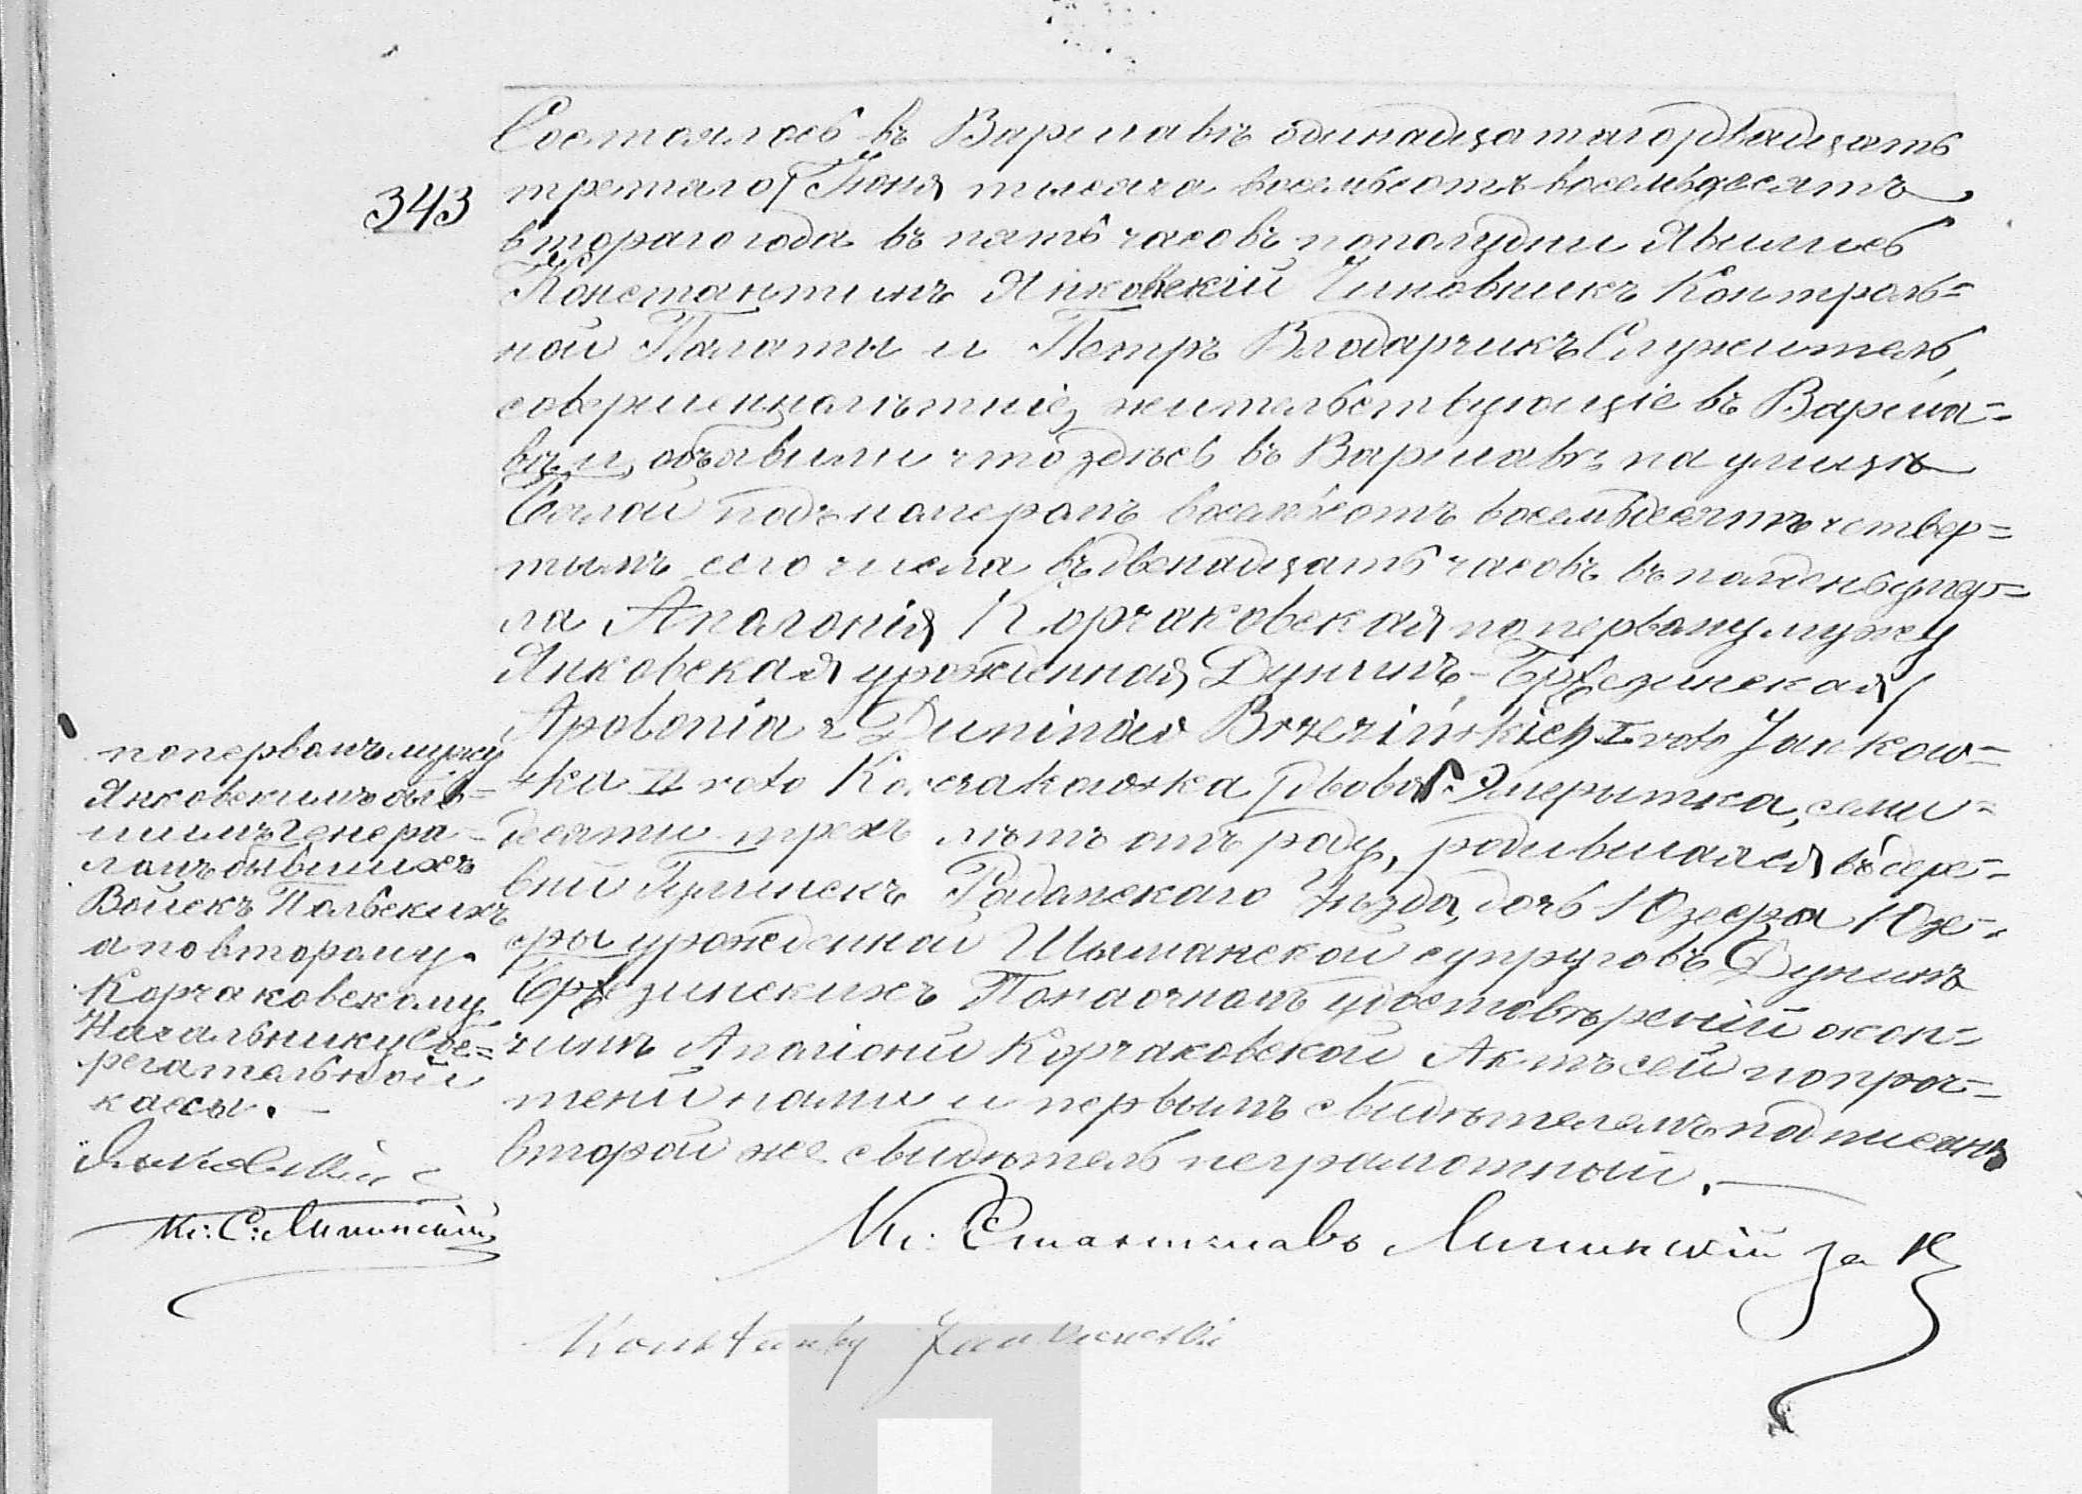 343
Состоялось въ Варшавѣ одинадцатаго/двадцать
третьяго/ Іюня тысяча восемьсотъ восемьдесятъ
втораго года въ пять часовъ пополудни. Явились
Константинъ Янковскій Чиновникъ Контроль=
ной Палаты и Петръ Влодарчикъ Служитель,
совершеннолѣтніе, жительствующіе въ Варша=
вѣ и объявили что здѣсь въ Варшавѣ на улицѣ
Бѣлой подъ номеромъ восемьсотъ восемьдесятъ четвер=
тымъ сего числа въ двенадцать часовъ въ полдень умер=
ла Аполонія Корчаковская по первому мужу
Янковская урожденная Дунинъ-Бржезинская/
Apolonia z Duninów Brzezińskich I voto Jankow=
ska II voto Korczakowska/ вдова Эмеритка, семи=
десяти трехъ лѣтъ отъ роду, родившаяся въ дере=
вни Радомскаго Уѣзда, дочь Юзефа и Юзе=
фы урожденной Шиманской супруговъ Дунинъ
Бржезинскихъ По наочномъ удостовѣреніи о кон=
чинѣ Аполоніи Корчаковской Актъ сей по проч=
теніи нами и первымъ свидѣтелемъ подписанъ
второй же свидѣтель неграмотный.
по первомъ мужу
Янковскимъ быв=
шимъ Генера=
ломъ бывшихъ
Войскъ Польскихъ
а по второму
Корчаковскому
Начальнику Сбе=
регательной
кассы.
Янковскій
Кс: С: Липинскій
Кс: Станиславъ Липинскій за
Konstanty Jankowski